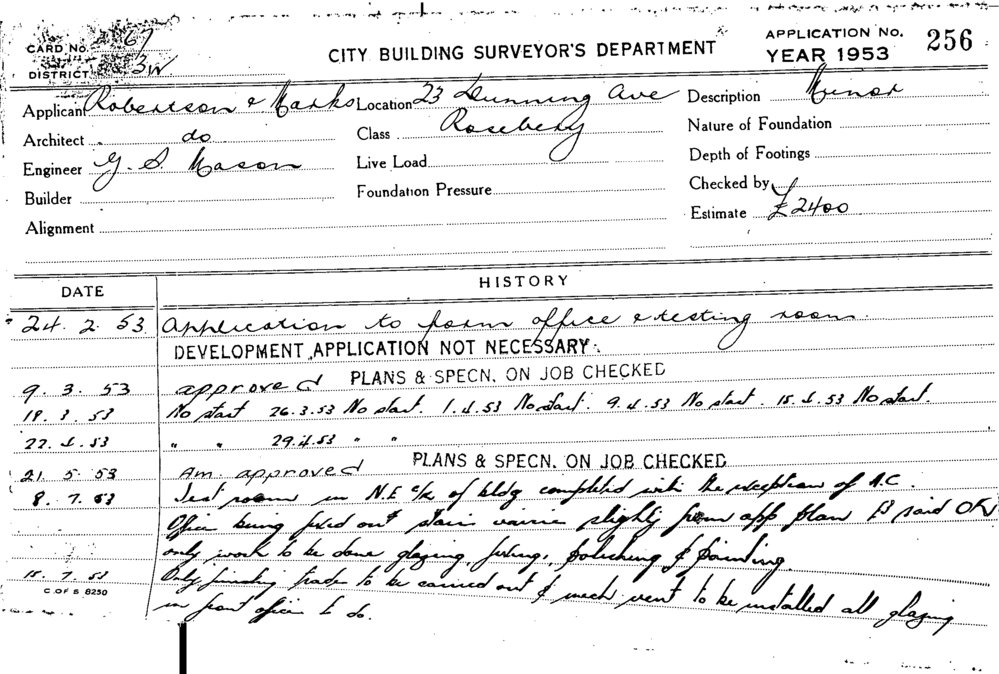 CARD No. 67
DISTRICT 3W
CITY BUILDING SURVEYOR'S DEPARTMENT
APPLICATION No. 256
YEAR 1953
Applicant Robertson & Marks Location 23 Dunning Ave Description Minor
Architect do Class Rosebery Nature of Foundation
Engineer G. S. Mason Live Load Depth of Footings
Builder Foundation Pressure Checked by
Alignment Estimate £2400
DATE HISTORY
24. 2. 53. Application to form office & testing room.
DEVELOPMENT APPLICATION NOT NECESSARY.
9. 3. 53 approved PLANS & SPECN. ON JOB CHECKED
18. 3. 53 No start 26.3.53 No start. 1.4.53 No start. 9.4.53 No start. 15.4.53 No start.
22. 4. 53 " " 29.4.53 " "
21. 5. 53 Am. approved PLANS & SPECN. ON JOB CHECKED
8. 7. 53 Test room in N.E c/r of bldg completed with the exception of A.C.
Office being fixed out stair varies slightly from app plan said OK
only work to be done glazing, fixing, polishing & painting.
15. 7. 53 Only finishing trades to be carried out & mech vent to be installed all glazing
C OF S 8250
in front office to do.